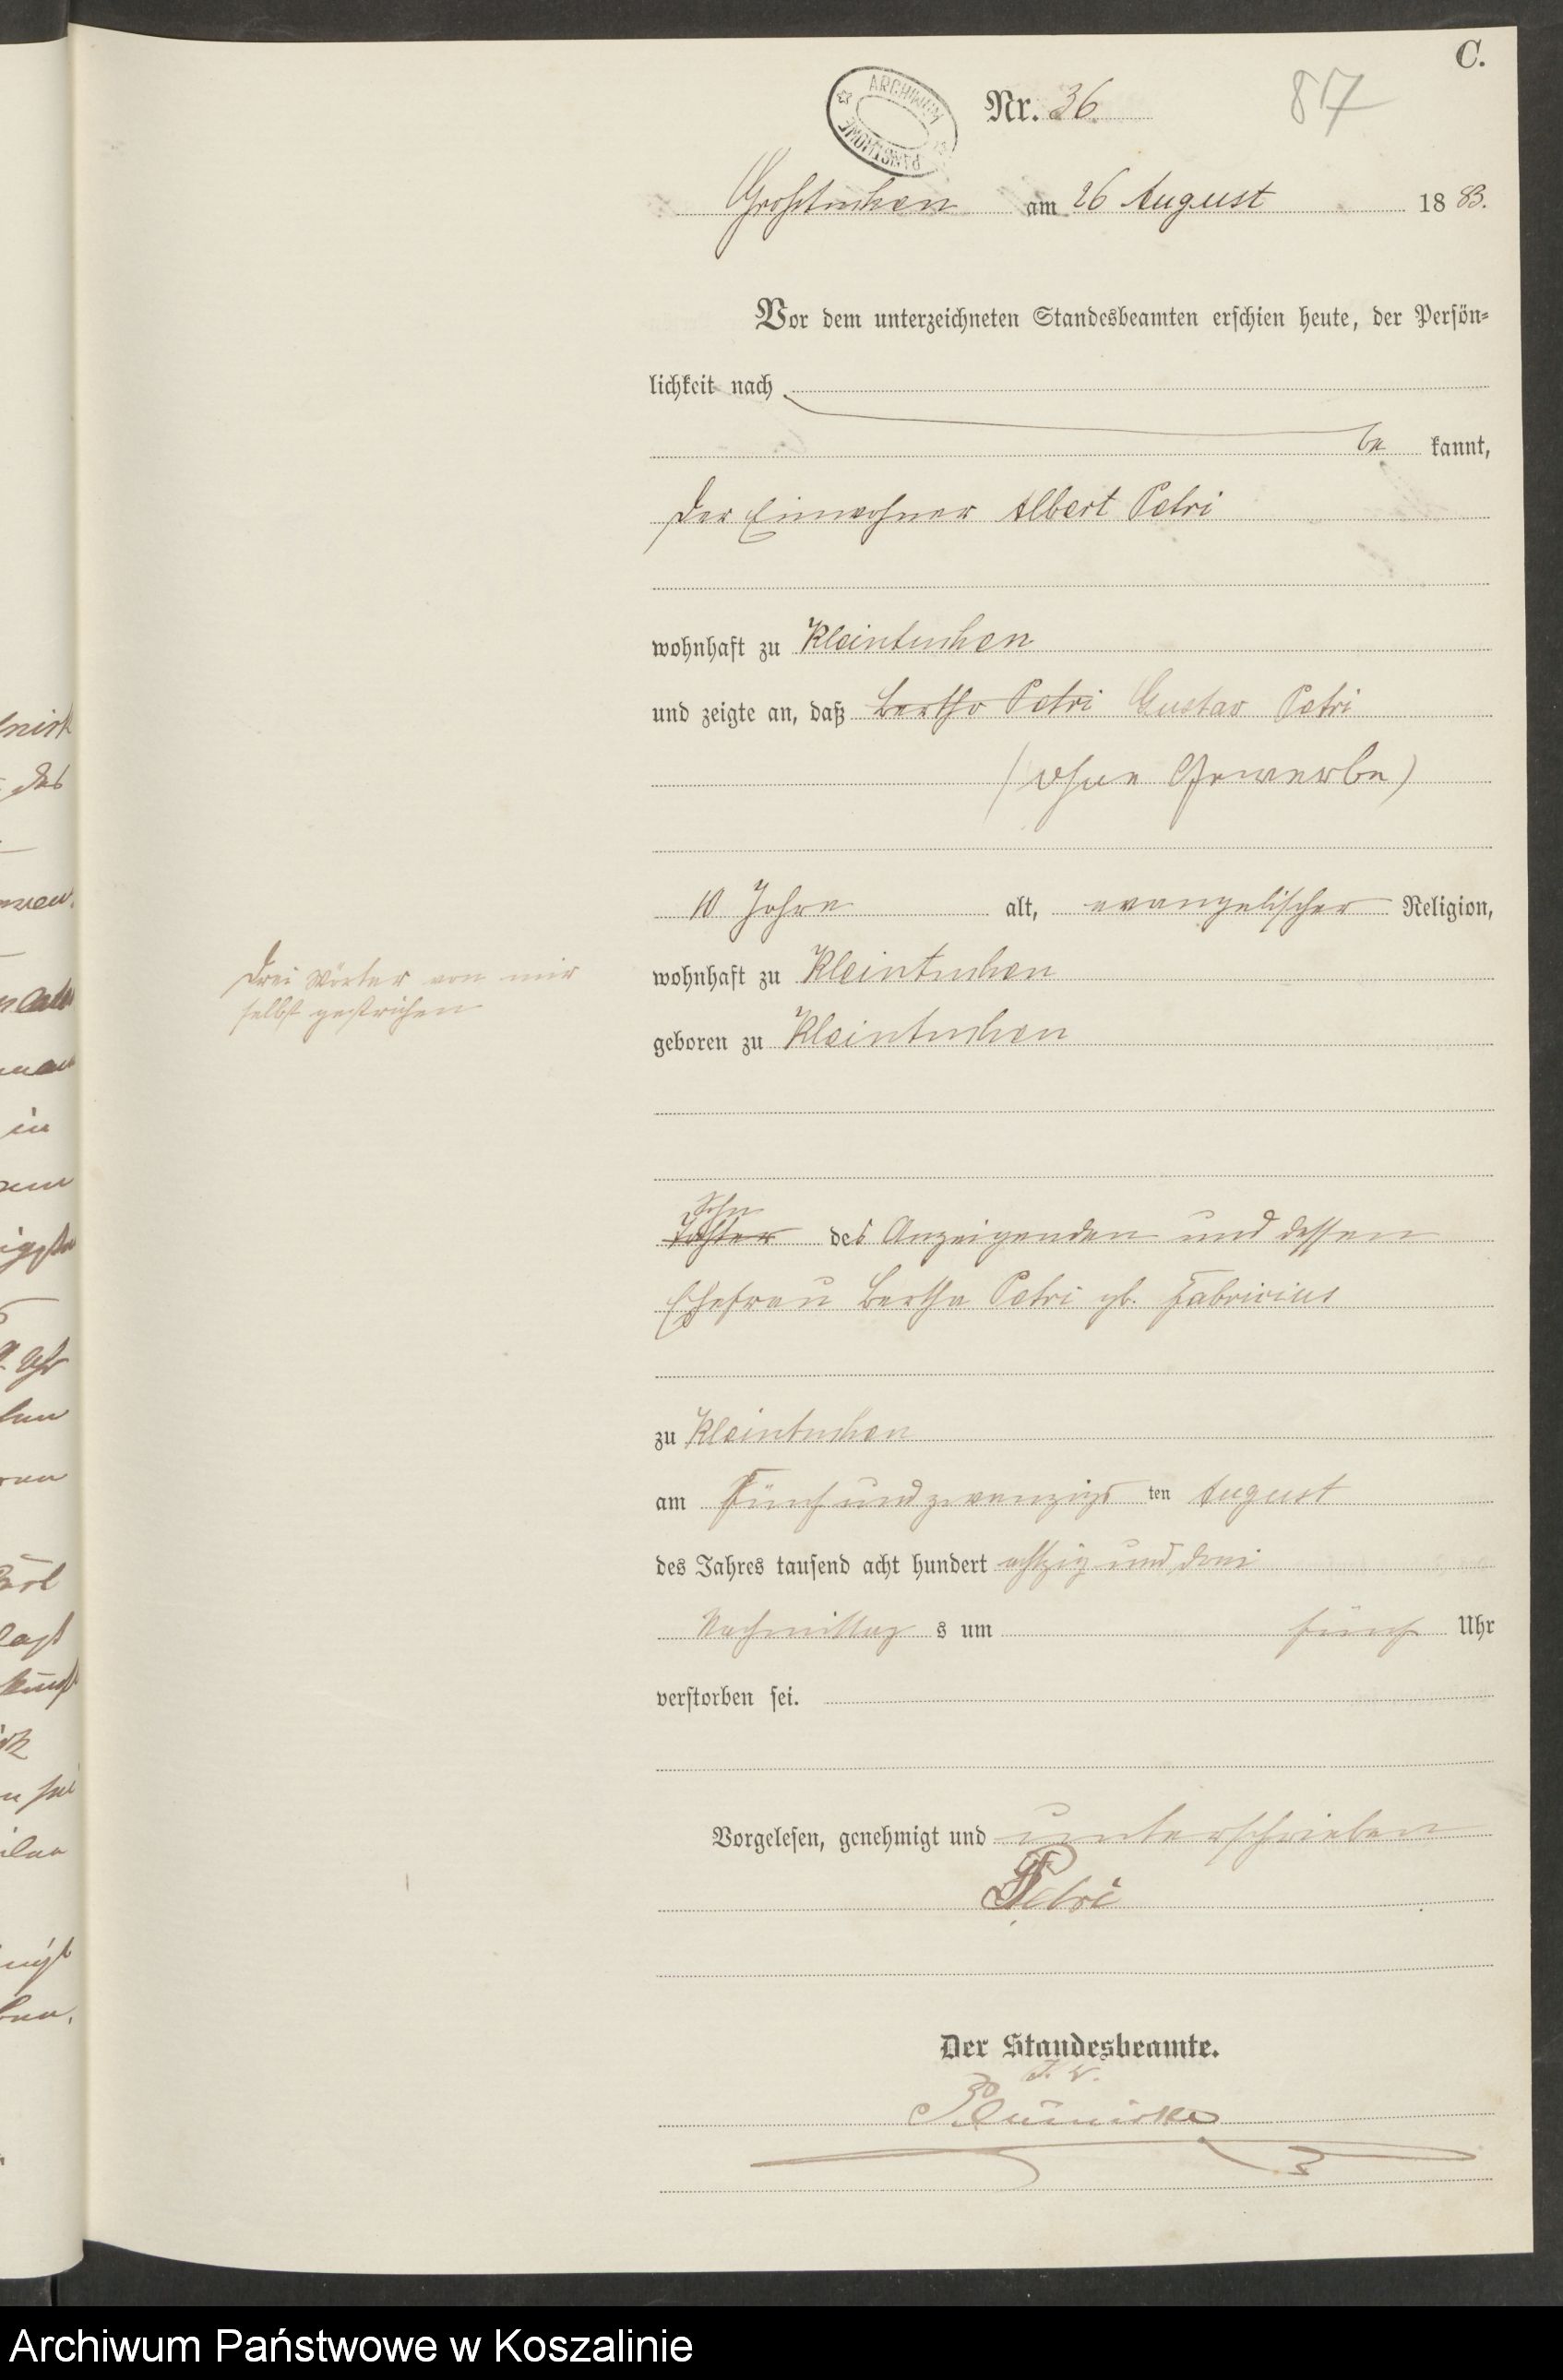 C.
ARCHIWUM PAŃSTWOWE
Nr. 36
87
Großtuchen am 26 August 1883.
Vor dem unterzeichneten Standesbeamten erschien heute, der Persön-
lichkeit nach
be kannt,
der Einwohner Albert Petri
wohnhaft zu Kleintuchen
und zeigte an, daß Bertha Petri Gustav Petri
(ohne Gewerbe)
10 Jahre alt, evangelischer Religion,
Drei Wörter von mir
selbst gestrichen
wohnhaft zu Kleintuchen
geboren zu Kleintuchen
Sohn
Tochter des Anzeigenden und dessen
Ehefrau Bertha Petri gb. Fabricius
zu Kleintuchen
am fünf und zwanzigs ten August
des Jahres tausend acht hundert achtzig und drei
Nachmittag s um fünf Uhr
verstorben sei.
Vorgelesen, genehmigt und unterschrieben
Petri
Der Standesbeamte.
J. V.
Archiwum Państwowe w Koszalinie